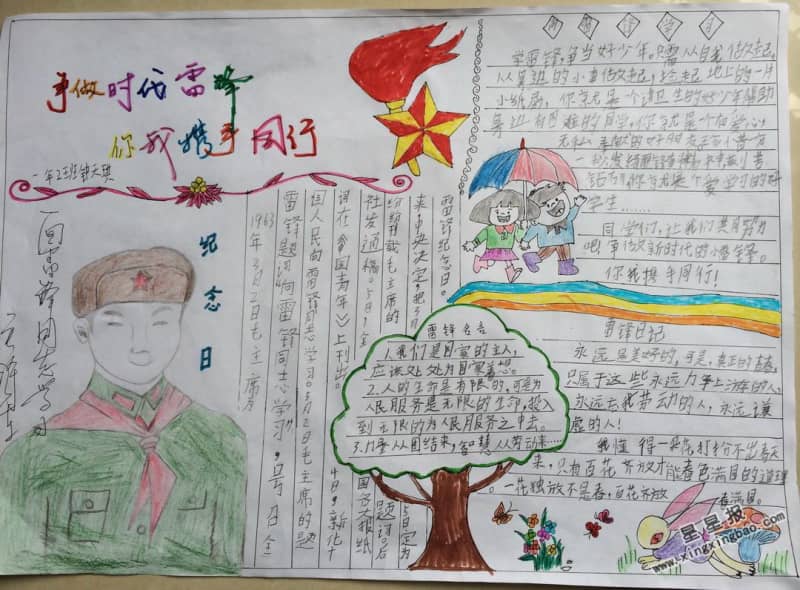 争做时代雷锋
你我携手同行
一年2班
向雷锋同志学习
毛泽东
纪念日
1963年3月2日毛主席为
雷锋题词“向雷锋同志学习”,号召全
国人民向雷锋同志学习。3月2日毛主席的题
词在《中国青年》上刊出。
社发通稿。3月5日,全
纷刊载毛主席的
来,中央决定,把3月
雷锋纪念日。
4日,新华
国各大报纸
题词。后
5日定为
雷锋名言
1.我们是国家的主人,
应该处处为国家着想。
2.人的生命是有限的,可是为
人民服务是无限的,
到无限的为人民服务之中去。
3.力量从团结来,智慧从劳动来……
学雷锋,争当好少年。只需从自我做起,
从身边的小事做起;捡起地上的一片
小纸屑,你就是一个讲卫生的好少年;帮助
身边有困难的同学,你就是一个有爱心,
学生……
同学们,让我们共同努力
吧!争做新时代的小雷锋。
你我携手同行!
雷锋日记
永远是美好的,可是,真正的青春,
只属于这些永远力争上游的人,
永远忘我劳动的人,永远谦
虚的人!
我懂得一朵花打扮不出春天
来,只有百花齐放才能春色满园的道理。
一花独放不是春,百花齐放春满园。
星星报
www.xingxingbao.com